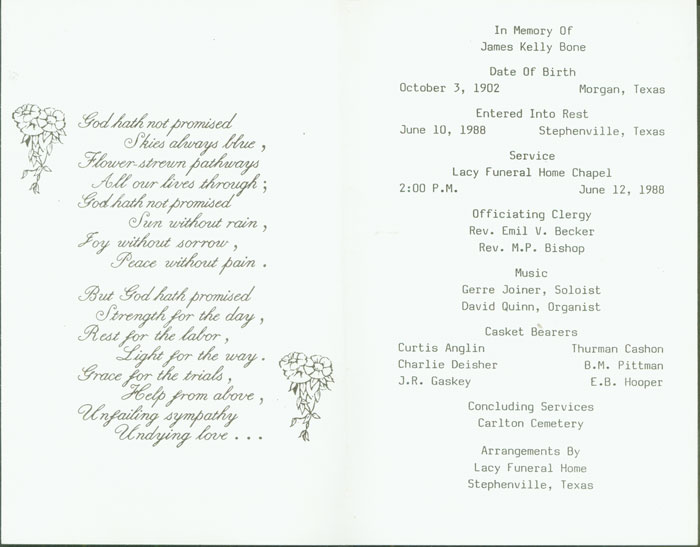 God hath not promised
Skies always blue,
Flower-strewn pathways
All our lives through;
God hath not promised
Sun without rain,
Joy without sorrow,
Peace without pain.
But God hath promised
Strength for the day,
Rest for the labor,
Light for the way.
Grace for the trials,
Help from above,
Unfailing sympathy
Undying love...
In Memory Of
James Kelly Bone
Date Of Birth
October 3, 1902 Morgan, Texas
Entered Into Rest
June 10, 1988 Stephenville, Texas
Service
Lacy Funeral Home Chapel
2:00 P.M. June 12, 1988
Officiating Clergy
Rev. Emil V. Becker
Rev. M.P. Bishop
Music
Gerre Joiner, Soloist
David Quinn, Organist
Casket Bearers
Curtis Anglin Thurman Cashon
Charlie Deisher B.M. Pittman
J.R. Gaskey E.B. Hooper
Concluding Services
Carlton Cemetery
Arrangements By
Lacy Funeral Home
Stephenville, Texas